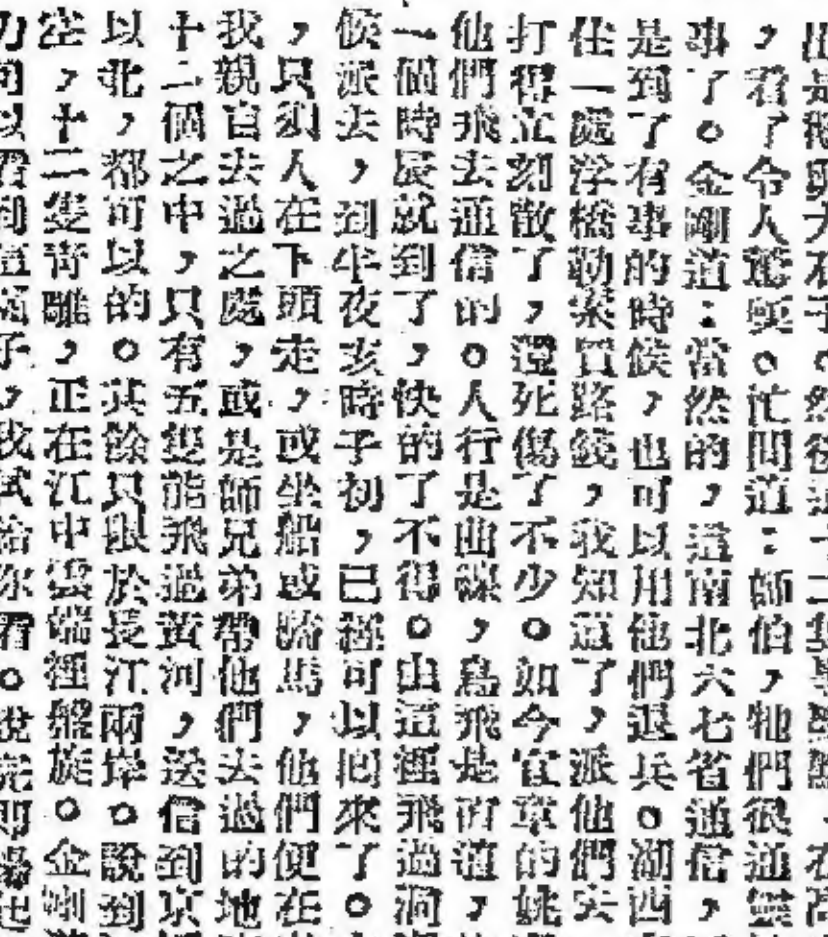 ，看了令人驚奧。忙問道：師伯，牠們很通靈
事了。金剛道：當然的，這南北六七省通信，
是到了有事的時候，也可以用他們退兵。湖西
一處浮橋勒索買路錢，我知道了，派他們去
打得立刻散了，還死傷了不少。如今官軍的姚
他們飛去通信的。人行是曲線，鳥飛是直道，
一個時辰就到了，快的了不得。由這裡飛過洞
候派去，到半夜亥時子初，已經可以回來了。
，只須人在下頭走，或坐船或騎馬，他們便在
我親自去過之處，或是師兄弟帶他們去過的地
十二個之中，只有五隻能飛過黃河，送信到京
以北，都可以的。其餘只限於長江兩岸。說到
空，十二隻青雕，正在江中雲端裡盤旋。金剛